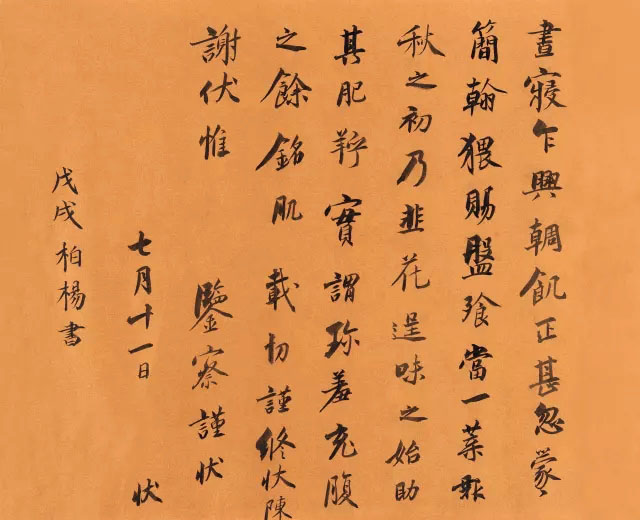 晝寢乍興輖飢正甚忽蒙
簡翰猥賜盤飧當一葉報
秋之初乃韭花逞味之始助
其肥羜實謂珍羞充腹
之餘銘肌載切謹修狀陳
謝伏惟鑒察謹狀
七月十一日狀
戊戌柏楊書